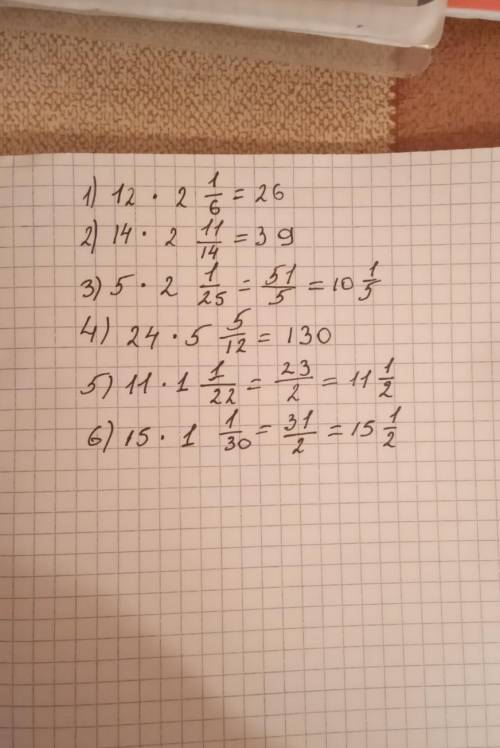 1) 12 · 2 1/6 = 26
2) 14 · 2 11/14 = 39
3) 5 · 2 1/25 = 51/5 = 10 1/5
4) 24 · 5 5/12 = 130
5) 11 · 1 1/22 = 23/2 = 11 1/2
6) 15 · 1 1/30 = 31/2 = 15 1/2